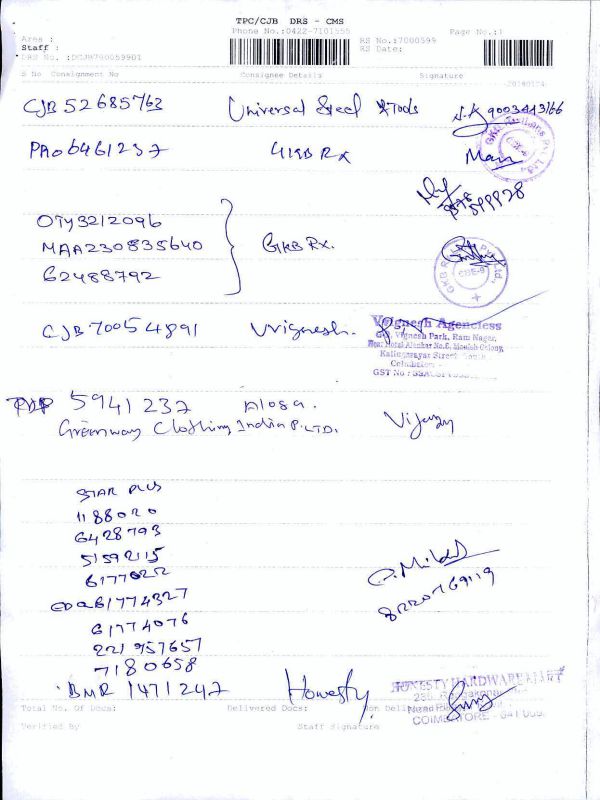 TPC/CJB DRS - CMS
Phone No.:0422-7101555
Area :
Staff :
DRS No. :DCJB700059901
RS No.:7000599
RS Date:
Page No.:1
S No Consignment No Consignee Details Signature
CJB 52685763 Universal Steel & Tools 9003443166
PA06461237 GKB Rx Man
OTY3212096
MAA230835640 GKB Rx.
62488792
GKB R Pvt Ltd
CBE-9
CJB 70054891 Vvignesh.
Vvignesh Agenciess
Vignesh Park, Ram Nagar,
Kalingarayar Street
Coimbatore -
GST No :
5941237 Alosa.
Greenway Clothing India P. LTD. Vijay
STAR PLUS
1188020
6428793
51592115
6177022
61774327
61774076
221957657
7180658
8220769119
BMR 1471247 Honesty
HONESTY HARDWARE MART
COIMBATORE - 641 009.
Total No. Of Docs: Delivered Docs: Non Delivered
Verified By Staff Signature